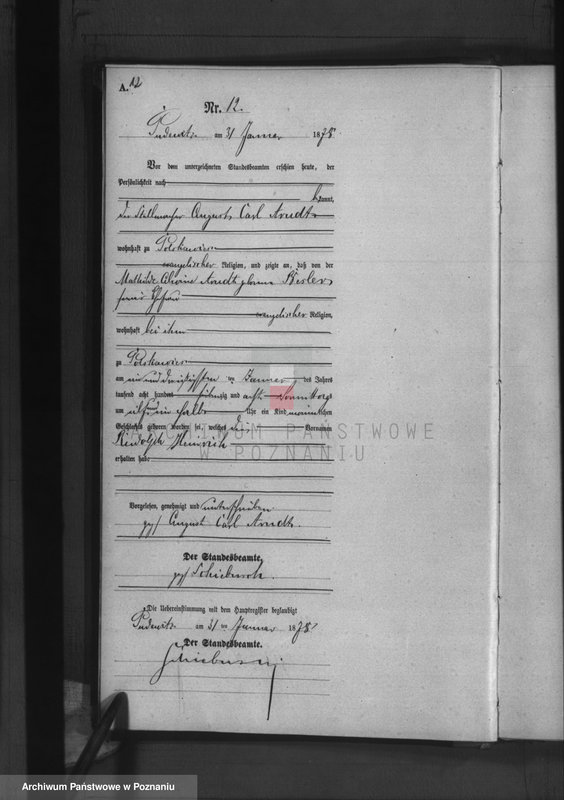 A. 12
Nr. 12.
Pudewitz am 31 Januar 1878
Vor dem unterzeichneten Standesbeamten erschien heute, der
Persönlichkeit nach
bekannt,
der Stellmacher August Carl Arndt
wohnhaft zu
evangelischer Religion, und zeigte an, daß von der
Mathilde Arndt geborne
seiner Ehefrau
evangelischer Religion,
wohnhaft bei ihm
zu
am ein und dreißigsten ten Januar des Jahres
tausend acht hundert siebenzig und acht Vormittags
um ein halb Uhr ein Kind männlichen
Geschlechts geboren worden sei, welches die Vornamen
Rudolph Heinrich
erhalten habe.
Vorgelesen, genehmigt und unterschrieben
gez. August Carl Arndt.
Der Standesbeamte.
gez.
Die Uebereinstimmung mit dem Hauptregister beglaubigt
Pudewitz am 31 ten Januar 1878
Der Standesbeamte.
ARCHIWUM PAŃSTWOWE
W POZNANIU
Archiwum Państwowe w Poznaniu